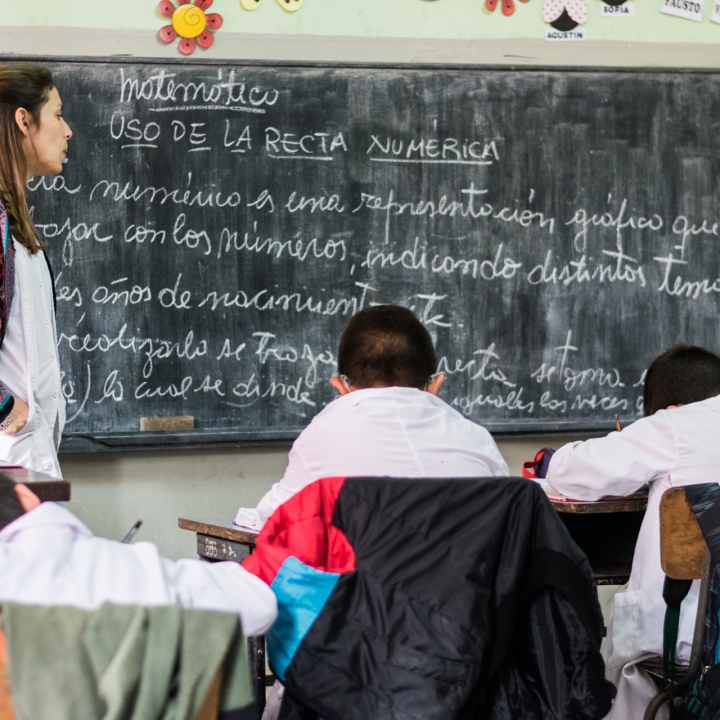 SOFIA FAUSTO
AGUSTIN
Matemática
USO DE LA RECTA NUMÉRICA
numérica es una representación gráfica que
con los números, indicando distintos
años de nacimient
se traza recta se toma
) la cual se divide iguales las veces